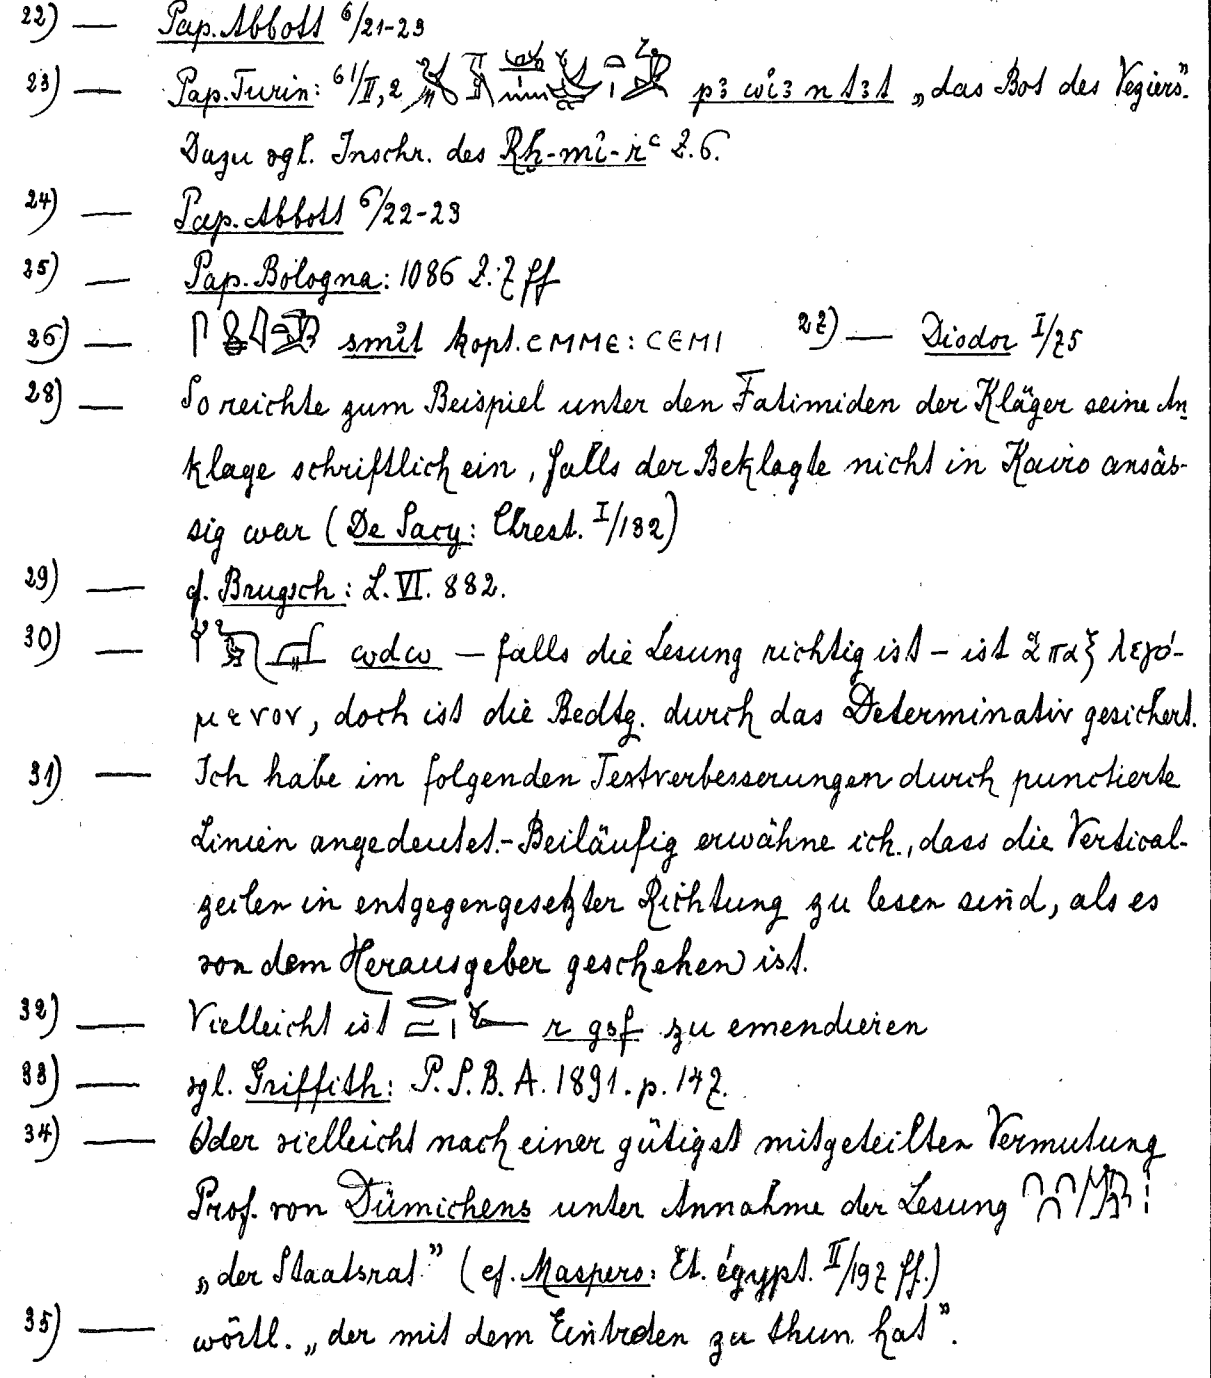 22) — Pap. Abbott 6/21-23
23) — Pap. Turin: 61/II, 2 pꜣ wiꜣ n tꜣt „das Bot des Veziers”.
Dazu vgl. Inschr. des Rḫ-mî-rꜥ Z. 6.
24) — Pap. Abbott 6/22-23
25) — Pap. Bologna: 1086 Z. 7 ff
26) — smît kopt. ⲥⲙⲙⲉ : ⲥⲉⲙⲓ 27) — Diodor I/75
28) — So reichte zum Beispiel unter den Fatimiden der Kläger seine An
klage schriftlich ein, falls der Beklagte nicht in Kairo ansäs-
sig war (De Sacy: Chrest. I/132)
29) — cf. Brugsch: L. VI. 882.
30) — wdw — falls die Lesung richtig ist – ist ἅπαξ λεγό-
μενον, doch ist die Bedtg. durch das Determinativ gesichert.
31) — Ich habe im folgenden Textverbesserungen durch punctierte
Linien angedeutet. - Beiläufig erwähne ich, dass die Vertical-
zeilen in entgegengesetzter Richtung zu lesen sind, als es
von dem Herausgeber geschehen ist.
32) — Vielleicht ist r gsf zu emendieren
33) — vgl. Griffith: P. S. B. A. 1891. p. 147.
34) — Oder vielleicht nach einer gütigst mitgeteilten Vermutung
Prof. von Dümichens unter Annahme der Lesung
„der Staatsrat” (cf. Maspero: Et. égypt. II/197 ff.)
35) — wörtl. „der mit dem Eintreten zu thun hat”.